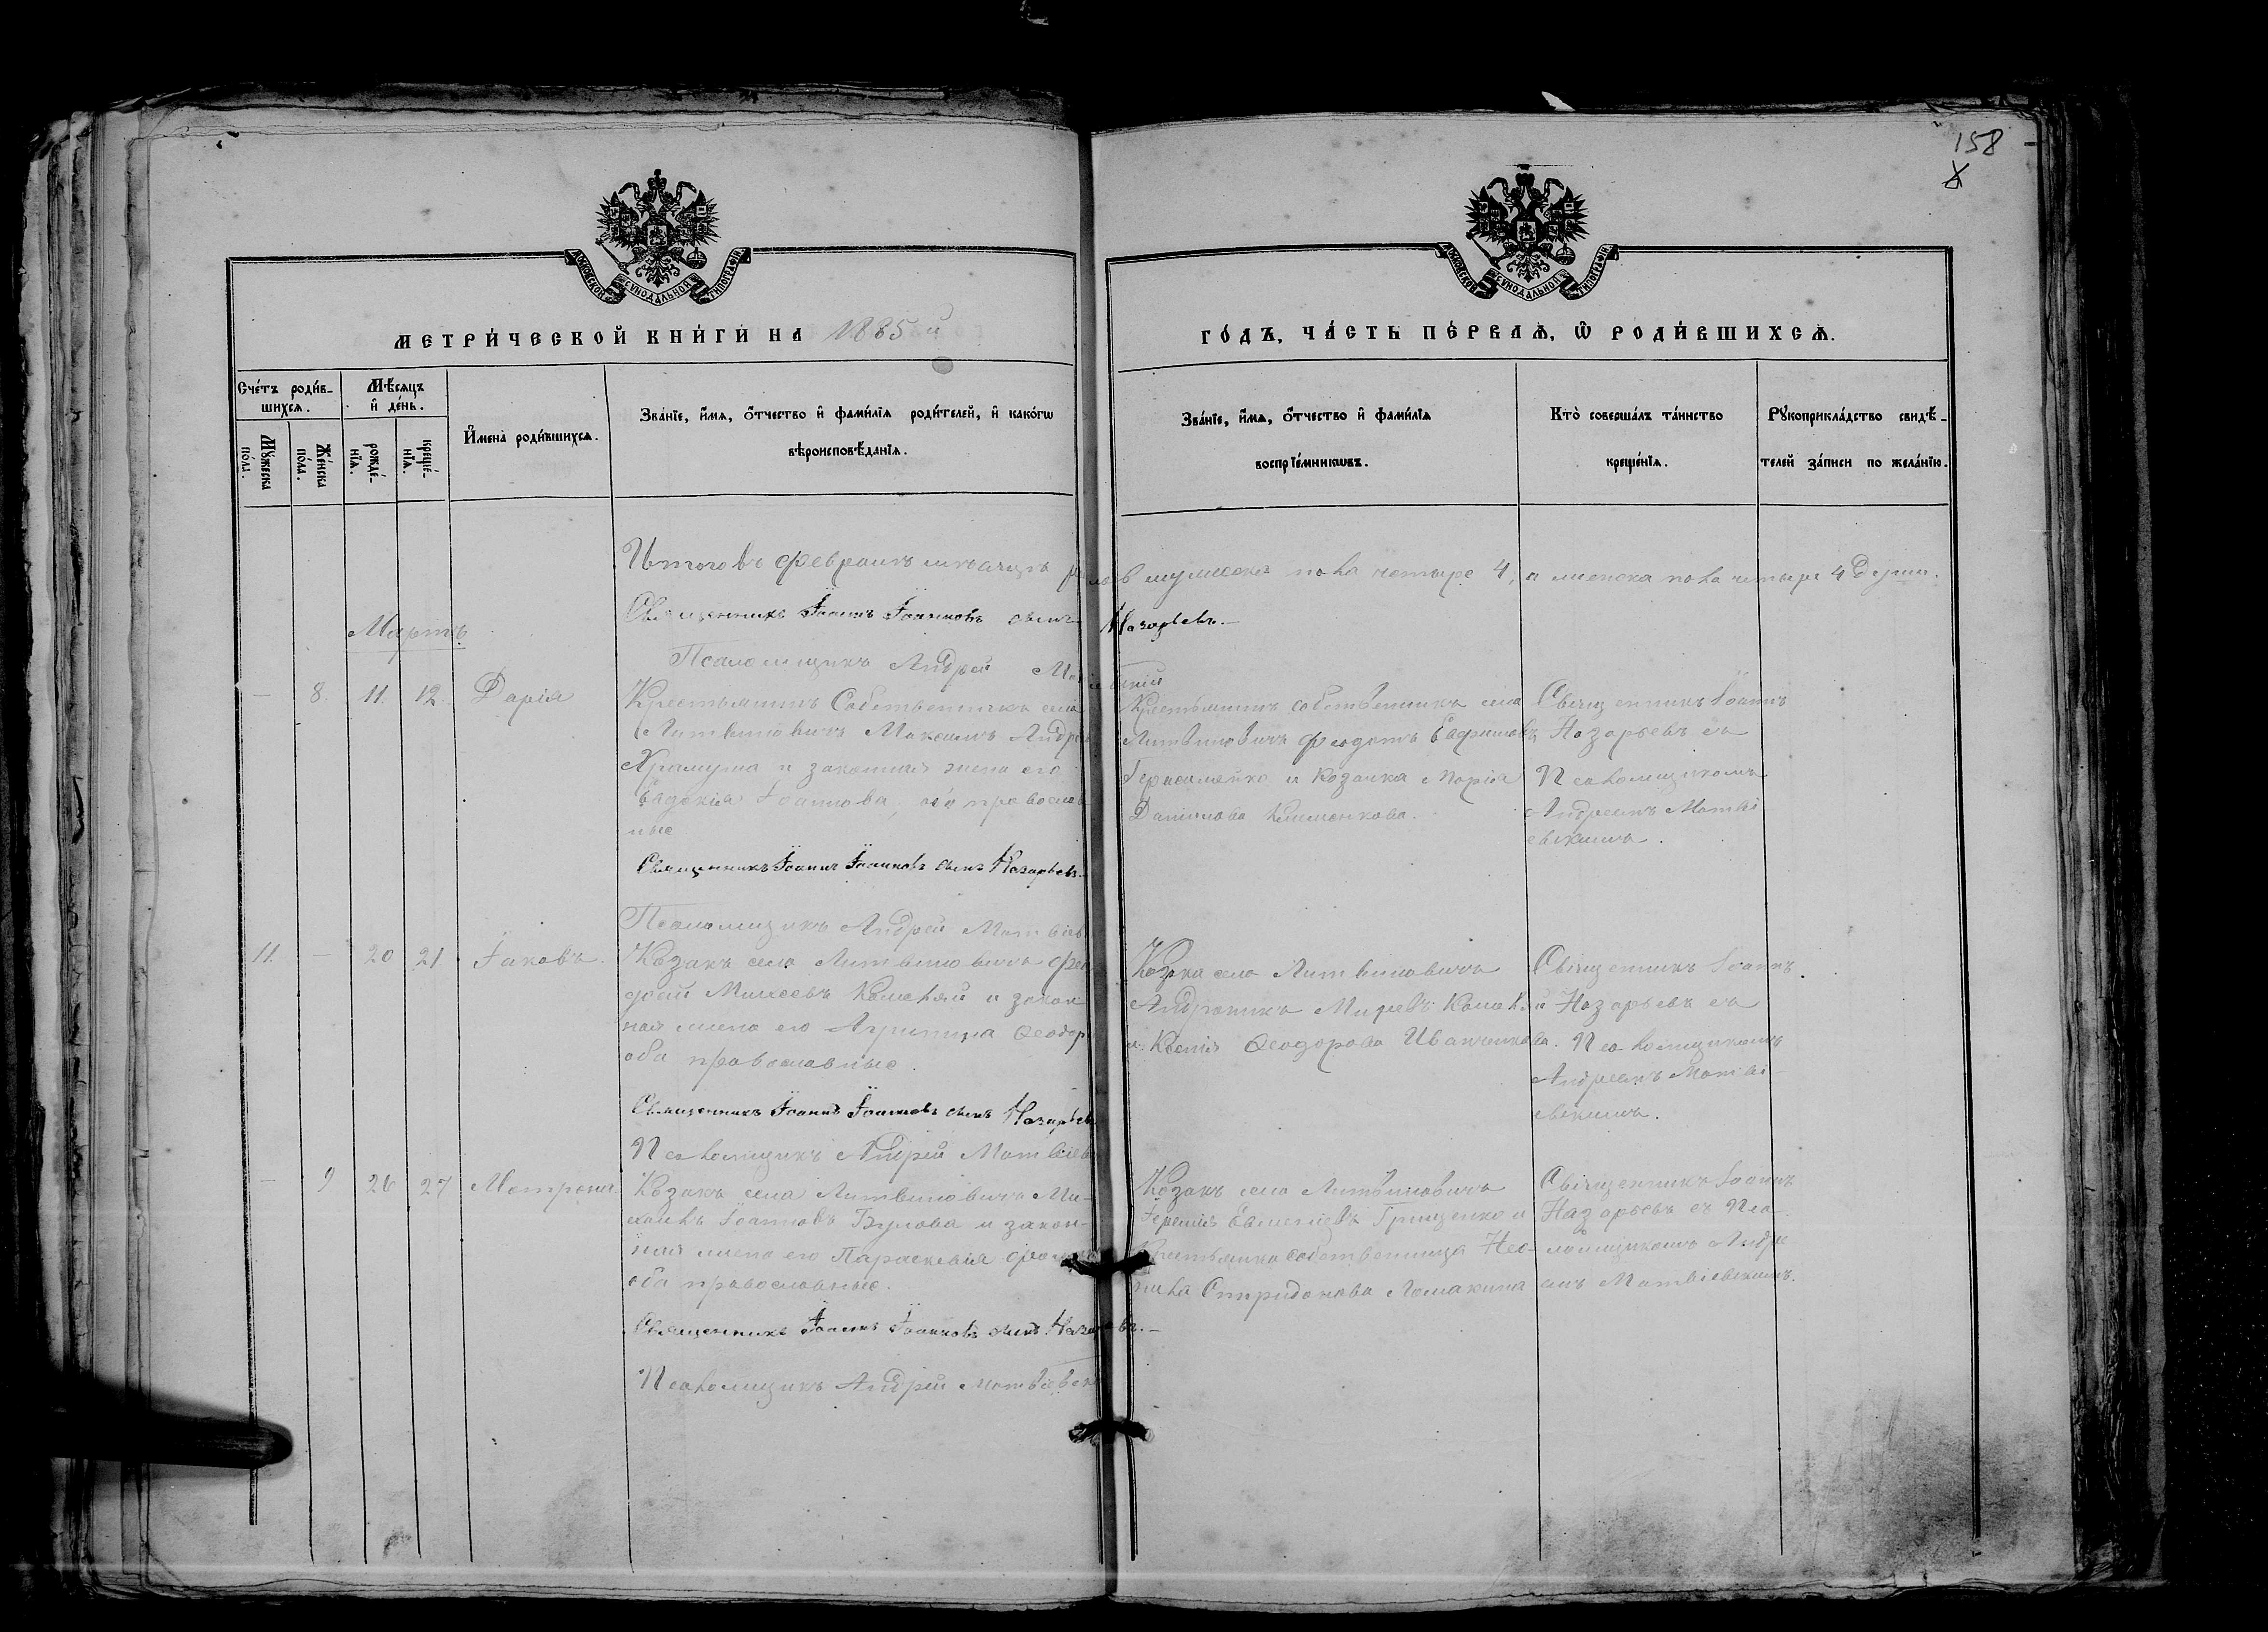 158
МОСКОВСКОЙ СУНОДАЛЬНОЙ ТИПОГРАФІИ
МОСКОВСКОЙ СУНОДАЛЬНОЙ ТИПОГРАФІИ
МЕТРИ́ЧЕСКОЙ КНИ́ГИ НА 1885 й
ГО́ДЪ, ЧА́СТЬ ПЕ́РВАѦ, Ѡ РОДИ́ВШИХСѦ.
Сче́тъ роди́в-
шихсѧ.
Мѣ́сѧцъ
и҆ де́нь.
Мꙋ́жеска
по́ла.
Же́нска
по́ла.
рожде́-
нїѧ.
креще́-
нїѧ.
И҆мена̀ роди́вшихсѧ.
Зва́нїе, и҆́мѧ, ѻ҆́тчество и҆ фами́лїѧ роди́телей, и҆ како́гѡ
вѣроисповѣ́данїѧ.
Зва́нїе, и҆́мѧ, ѻ҆́тчество и҆ фами́лїѧ
воспрїе́мникѡвъ.
Кто̀ соверша́лъ та́инство
креще́нїѧ.
Рꙋкоприкла́дство свидѣ́-
телей за́писи по жела́нїю.
Итого въ Февралѣ мѣсяцѣ мужеска пола четыре 4, а женска пола четыре 4 души.
Священникъ Іоаннъ Іоанновъ сынъ Назарьевъ.—
Мартъ
Псаломщикъ Андрей
— 8. 11. 12. Дарія
Крестьянинъ Собственникъ села
Литвиновичъ Максимъ
и законная жена его
Евдокія Іоаннова, оба православ
ные
Крестьянинъ собственникъ села
Литвиновичъ Феодотъ
и Козачка Марія
Даніилова Клименкова.
Священникъ Іоаннъ
Назарьевъ съ
Псаломщикомъ
Андреемъ Матві
евскимъ.
Священникъ Іоаннъ Іоанновъ сынъ Назарьевъ.
Псаломщикъ Андрей Матвіев
11. — 20 21 Іаковъ.
Козакъ села Литвиновичъ
и закон
ная жена его Агрипина Ѳеодор
оба православные.
Козака села Литвиновичъ
и Ксенія Ѳеодорова Иванченкова.
Священникъ Іоаннъ
Назарьевъ съ
Псаломщикомъ
Андреемъ Матві-
евскимъ.
Священникъ Іоаннъ Іоанновъ сынъ Назарьев
Псаломщикъ Андрей Матвіев
— 9 26 27 Матрона
Козакъ села Литвиновичъ Ми-
хаилъ Іоанновъ и закон-
ная жена его Параскевія
оба православные.
Козакъ села Литвиновичъ
Іеремія Грищенко и
Крестьянка собственница Нео-
нила Спиридонова Ломакина
Священникъ Іоаннъ
Назарьевъ съ Пса-
ломщикомъ Андре-
емъ Матвіевскимъ.
Священникъ Іоаннъ Іоанновъ сынъ Назарьевъ.—
Псаломщикъ Андрей Матвіевск